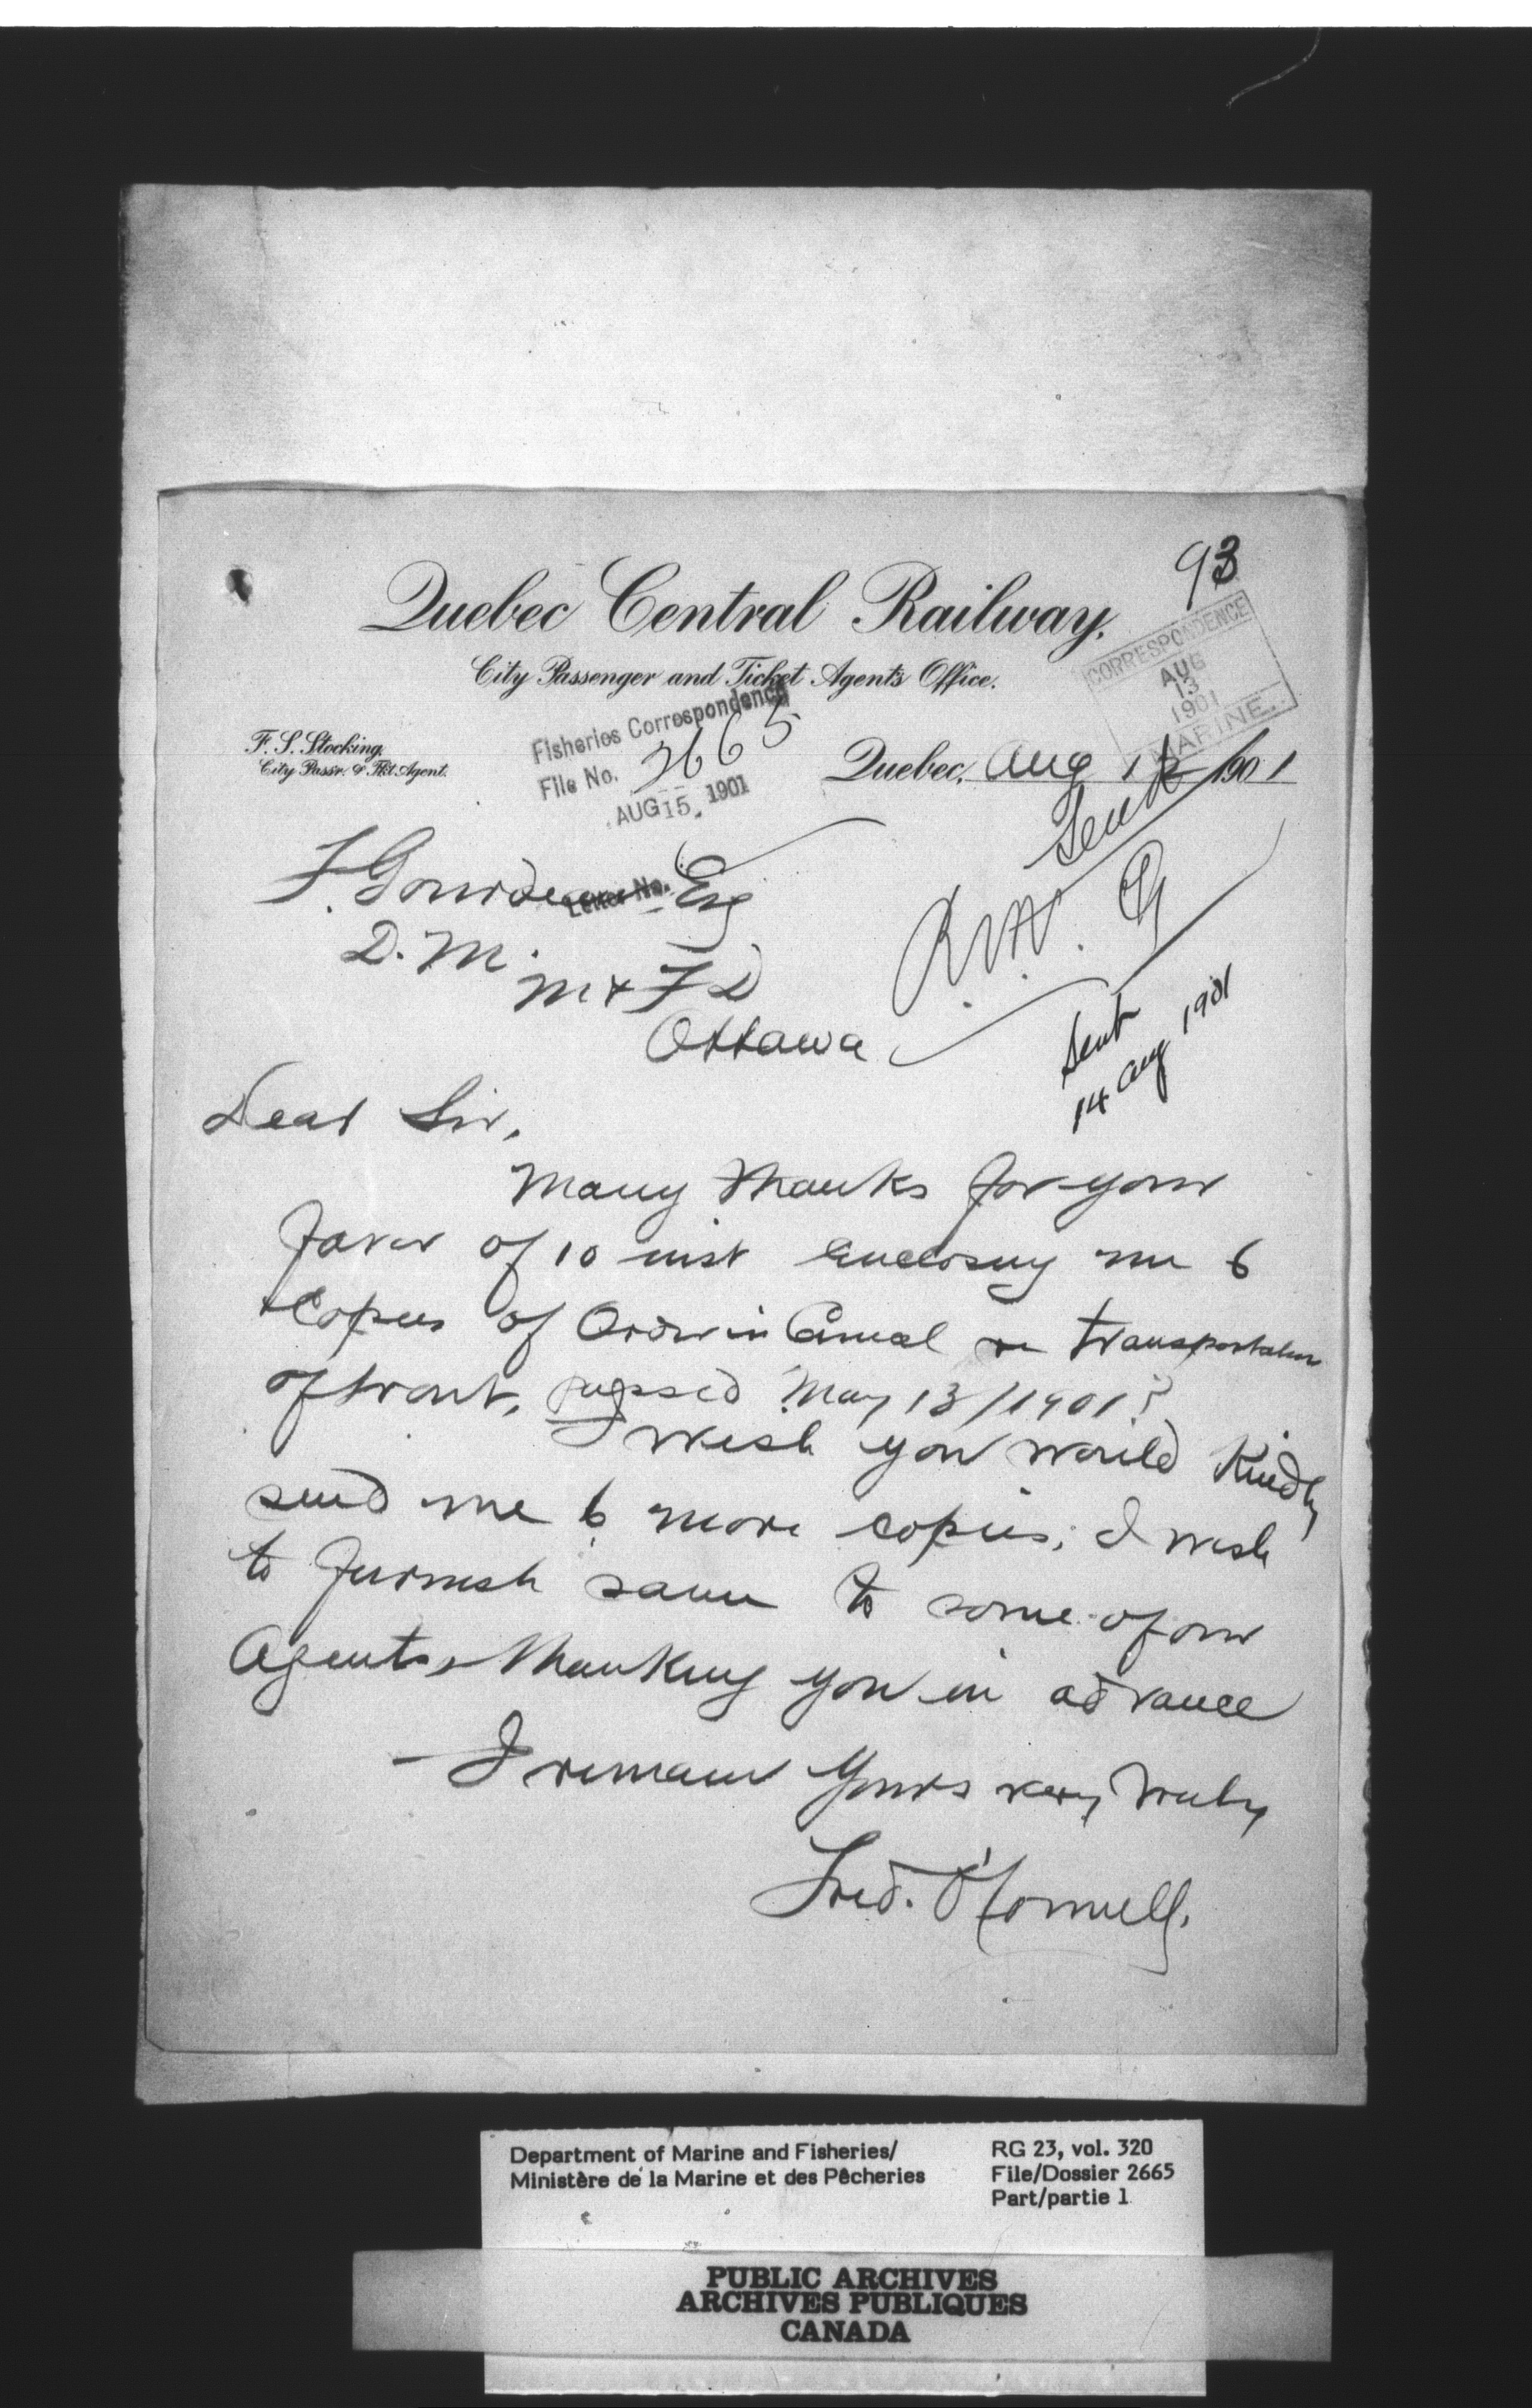 93
Quebec Central Railway.
City Passenger and Ticket Agent's Office.
CORRESPONDENCE
AUG
13
1901
MARINE.
F. S. Stocking,
City Passr. & Tkt. Agent.
Fisheries Correspondence
File No. 2665
AUG 15. 1901
Letter No.
Quebec, Aug 12 1901
Send
F Gourdeau Esq
D. M.
M & F D
Ottawa
Sent
14 Aug 1901
Dear Sir,
Many thanks for your
favor of 10 inst enclosing me 6
Copies of Order in Council re transportation
of trout, passed May 13/1901
I wish you would Kindly
send me 6 more copies. I wish
to furnish same to some of our
Agents, thanking you in advance
I remain Yours very truly
Fred. O'Connell.
Department of Marine and Fisheries/
Ministère de la Marine et des Pêcheries
RG 23, vol. 320
File/Dossier 2665
Part/partie 1
PUBLIC ARCHIVES
ARCHIVES PUBLIQUES
CANADA